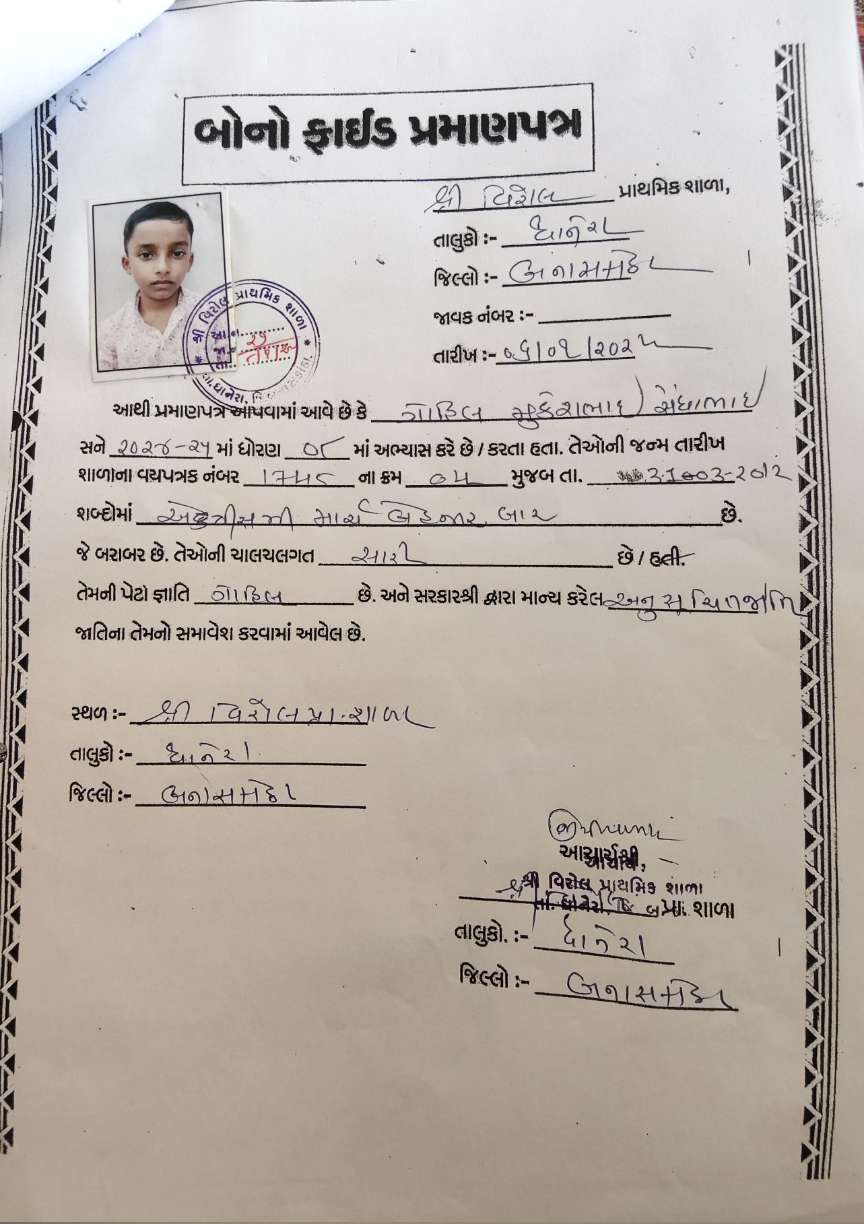 બોનો ફાઈડ પ્રમાણપત્ર
શ્રી વિરોલ પ્રાથમિક શાળા,
તાલુકો :- ધાનેરા
જિલ્લો :- બનાસકાંઠા
જાવક નંબર :-
તારીખ :- ૦૬/૦૧/૨૦૨૫
શ્રી વિરોલ પ્રાથમિક શાળા
આથી પ્રમાણપત્ર આપવામાં આવે છે કે ગોહિલ મુકેશભાઇ સેંધાભાઇ
સને ૨૦૨૪-૨૫ માં ધોરણ ૦૮ માં અભ્યાસ કરે છે / કરતા હતા. તેઓની જન્મ તારીખ
શાળાના વયપત્રક નંબર ના ક્રમ ૦૫ મુજબ તા. 31-03-2012
શબ્દોમાં એકત્રીસમી માર્ચ બે હજાર બાર છે.
જે બરાબર છે. તેઓની ચાલચલગત સારી છે / હતી.
તેમની પેટા જ્ઞાતિ ગોહિલ છે. અને સરકારશ્રી દ્વારા માન્ય કરેલ અનુસૂચિતજાતિ
જાતિના તેમનો સમાવેશ કરવામાં આવેલ છે.
સ્થળ :- શ્રી વિરોલ પ્રા.શાળા
તાલુકો :- ધાનેરા
જિલ્લો :- બનાસકાંઠા
આચાર્યશ્રી,
આચાર્ય
શ્રી વિરોલ પ્રાથમિક શાળા
તા. ધાનેરા, પ્રા. શાળા
તાલુકો. :- ધાનેરા
જિલ્લો :- બનાસકાંઠા